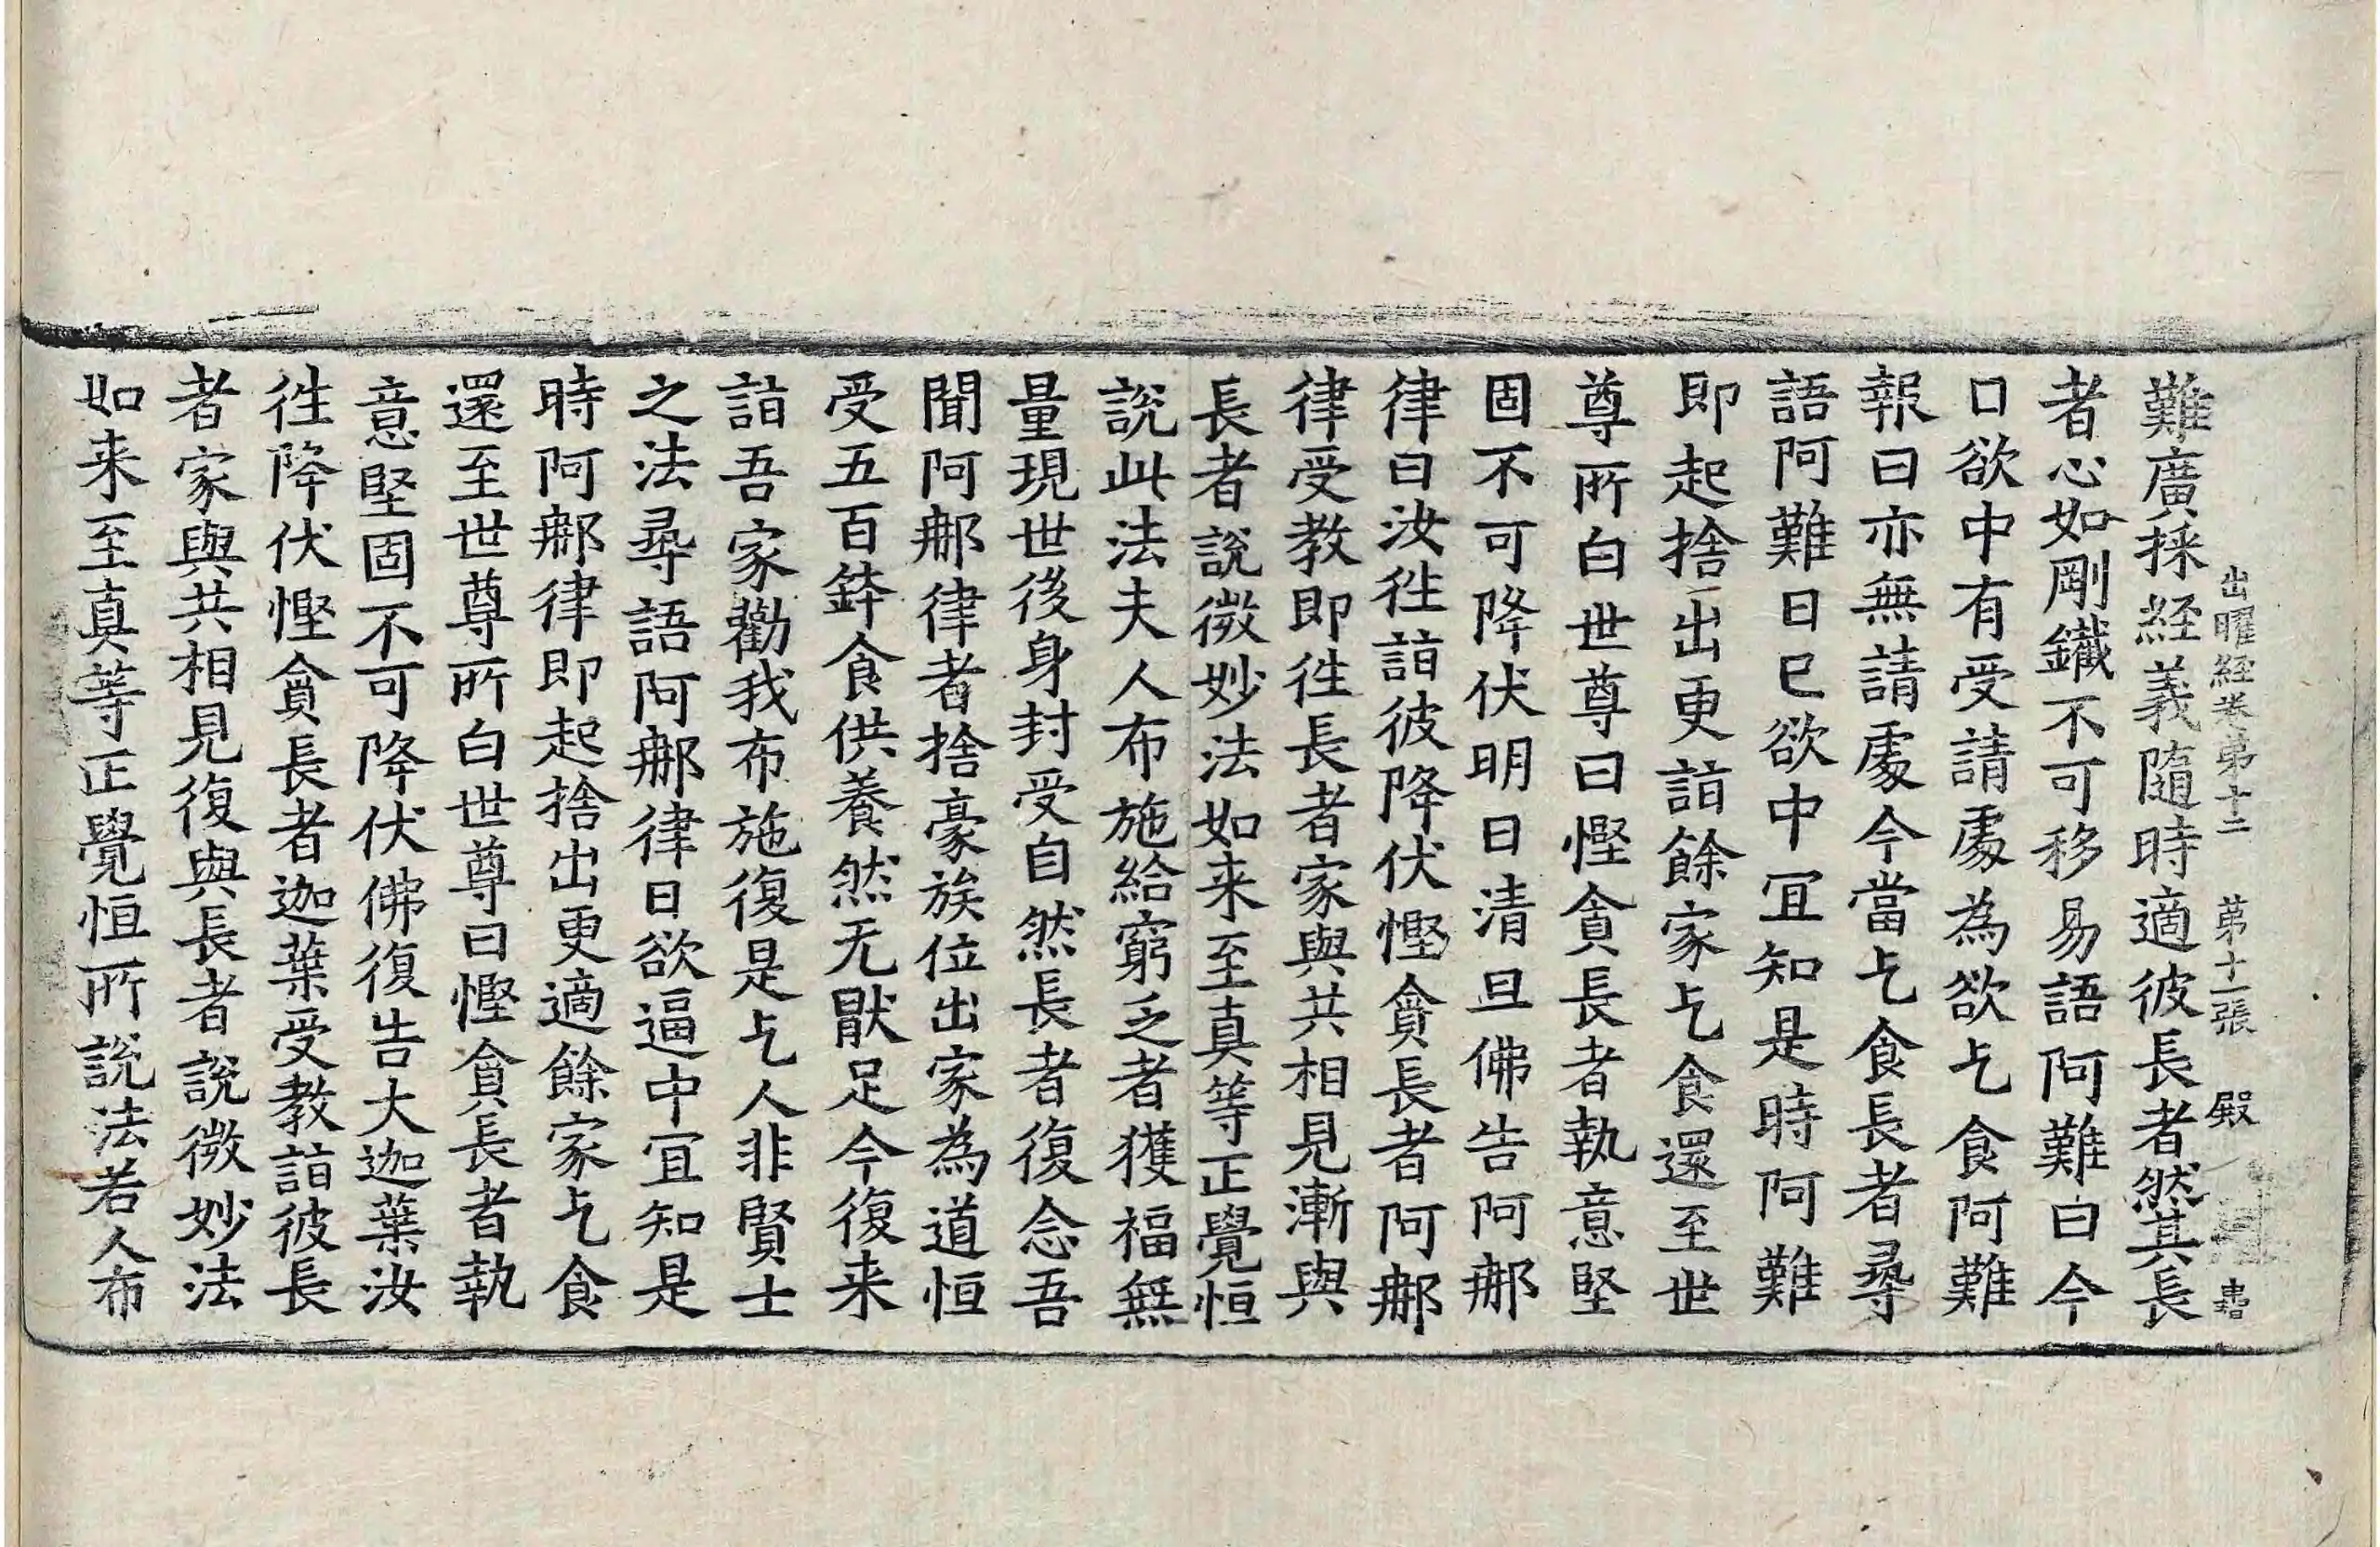 出曜經卷第十二　第十一張　殿
難廣採経義隨時適彼長者然其長
者心如剛鐵不可移易語阿難曰今
口欲中有受請處為欲乞食阿難
報曰亦無請處今當乞食長者尋
語阿難日已欲中宜知是時阿難
即起捨出更詣餘家乞食還至世
尊所白世尊曰慳貪長者執意堅
固不可降伏明日清旦佛告阿那
律曰汝徃詣彼降伏慳貪長者阿那
律受教即徃長者家與共相見漸與
長者說微妙法如来至真等正覺恒
說此法夫人布施給窮乏者獲福無
量現世後身封受自然長者復念吾
聞阿那律者捨豪族位出家為道恒
受五百鉢食供養然无猒足今復来
詣吾家勸我布施復是乞人非賢士
之法尋語阿那律日欲逼中宜知是
時阿那律即起捨出更適餘家乞食
還至世尊所白世尊曰慳貪長者執
意堅固不可降伏佛復告大迦葉汝
徃降伏慳貪長者迦葉受教詣彼長
者家與共相見復與長者說微妙法
如来至真等正覺恒所說法若人布